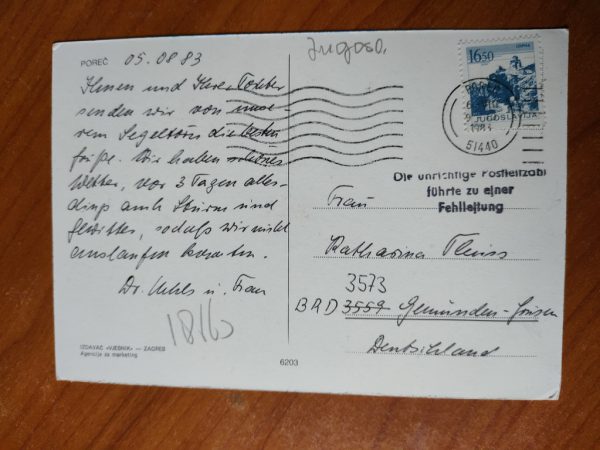 POREČ 05.08 83
Ihnen und Ihrer Tochter
senden wir von unse-
rem Segeltörn die besten
Grüße. Wir haben schönes
Wetter, vor 3 Tagen aller-
dings auch Sturm und
Gewitter, sodaß wir nicht
auslaufen konnten.
Dr. u. Frau
18163
IZDAVAČ «VJESNIK» — ZAGREB
Agencija za marketing
6203
Jugosl.
16.50
JUGOSLAVIJA
51440
Die unrichtige Postleitzahl
führte zu einer
Fehlleitung
Frau
Katharina
3573
BRD 3559 Gemünden-Grüsen
Deutschland